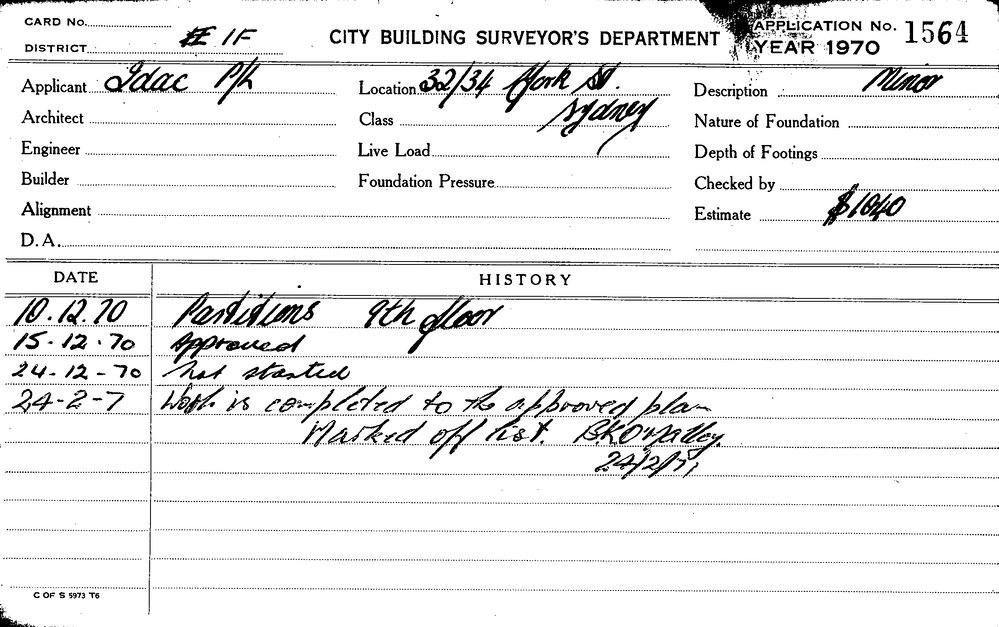 CARD No.
DISTRICT 1F
CITY BUILDING SURVEYOR'S DEPARTMENT
APPLICATION No. 1564
YEAR 1970
Applicant Idac P/L
Location 32/34 York St.
Sydney
Description Minor
Architect
Class
Nature of Foundation
Engineer
Live Load
Depth of Footings
Builder
Foundation Pressure
Checked by
Alignment
Estimate $1040
D.A.
DATE HISTORY
10.12.70 Partitions 9th floor
15.12.70 Approved
24-12-70 Not started
24-2-7 Work is completed to the approved plan
Marked off list. B.K.O'Malley.
24/2/71
C OF S 5973 T6